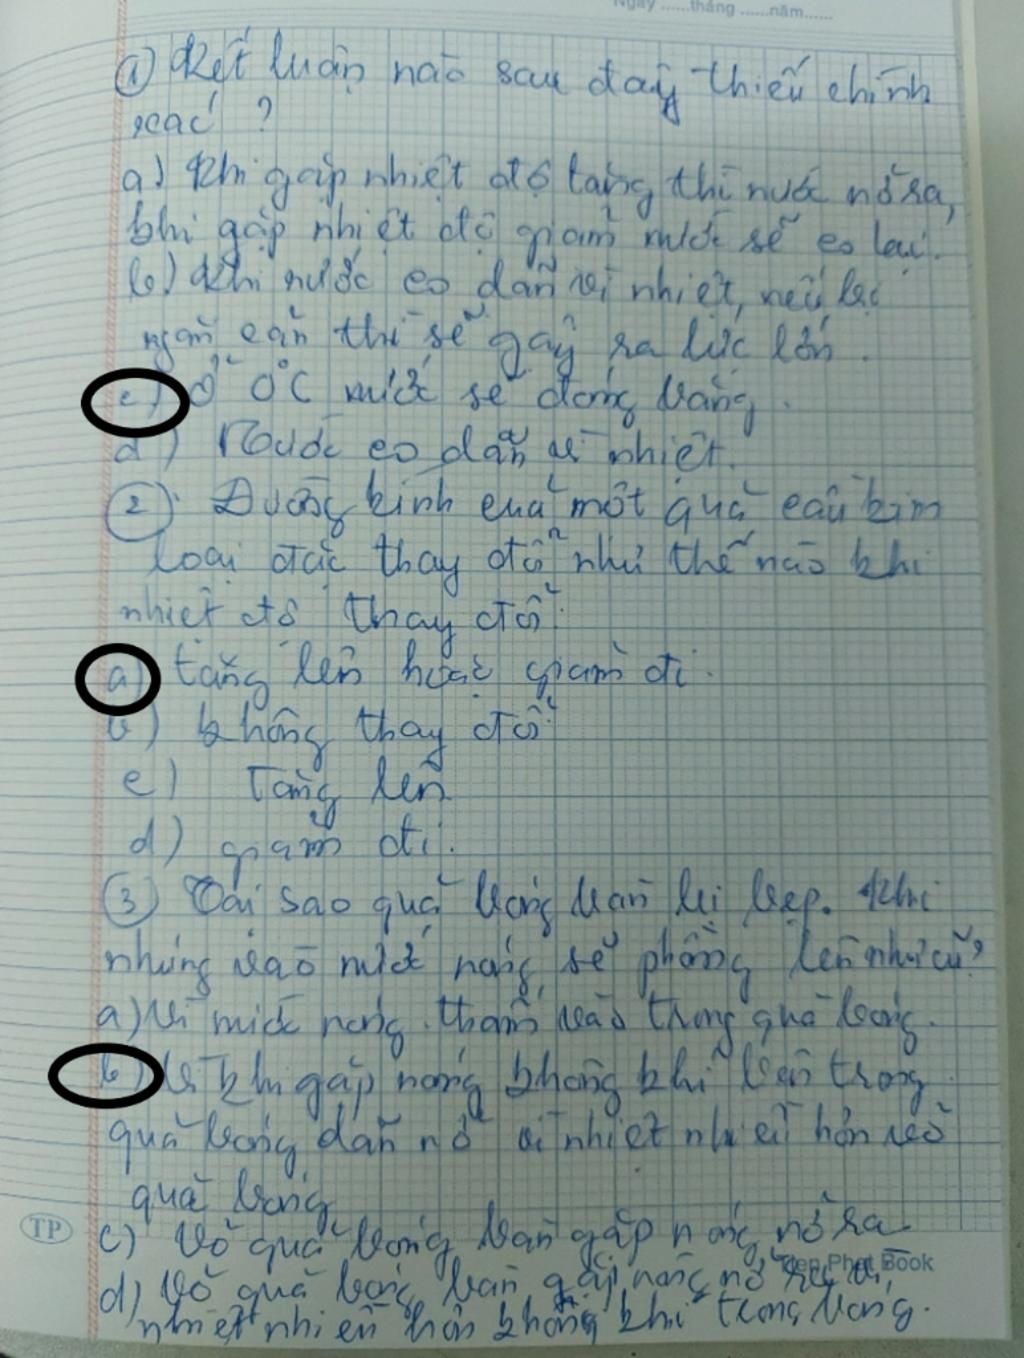 Ngày ......tháng ......năm......
① Kết luận nào sau đây thiếu chính
xác ?
a) Khi gặp nhiệt độ tăng thì nước nở ra,
khi gặp nhiệt độ giảm nước sẽ co lại.
b) Khi nước co dãn vì nhiệt, nếu bị
ngăn cản thì sẽ gây ra lực lớn.
c) Ở 0°C nước sẽ đóng băng.
d) Nước co dãn vì nhiệt.
②. Đường kính của một quả cầu kim
loại đặc thay đổi như thế nào khi
nhiệt độ thay đổi
a) tăng lên hoặc giảm đi.
b) không thay đổi
c) Tăng lên
d) giảm đi.
③ Tại sao quả bóng bàn bị bẹp. Khi
nhúng vào nước nóng sẽ phồng lên như cũ?
a) Vì nước nóng thấm vào trong quả bóng.
b) Vì khi gặp nóng không khí bên trong
quả bóng dãn nở vì nhiệt nhiều hơn vỏ
quả bóng
TP
c) Vỏ quả bóng bàn gặp nóng nở ra
Book
d) Vỏ quả bóng bàn gặp nóng nở ra vì
nhiệt nhiều hơn không khí trong bóng.